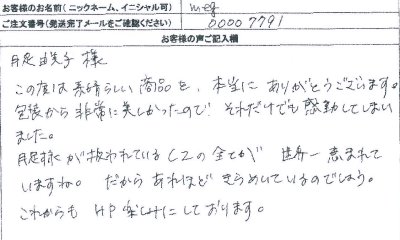 お客様のお名前(ニックネーム、イニシャル可) meg
ご注文番号(発送完了メールをご確認ください) 00007791
お客様の声ご記入欄
月足由美子 様
この度は素晴らしい商品を、本当に ありがとうございます。
包装から非常に美しかったので それだけでも感動してしまい
ました。
月足様が扱われている の全てが 世界一 恵まれて
いますね。 だから あれほど きらめいているのでしょう。
これからも HP 楽しみにしております。